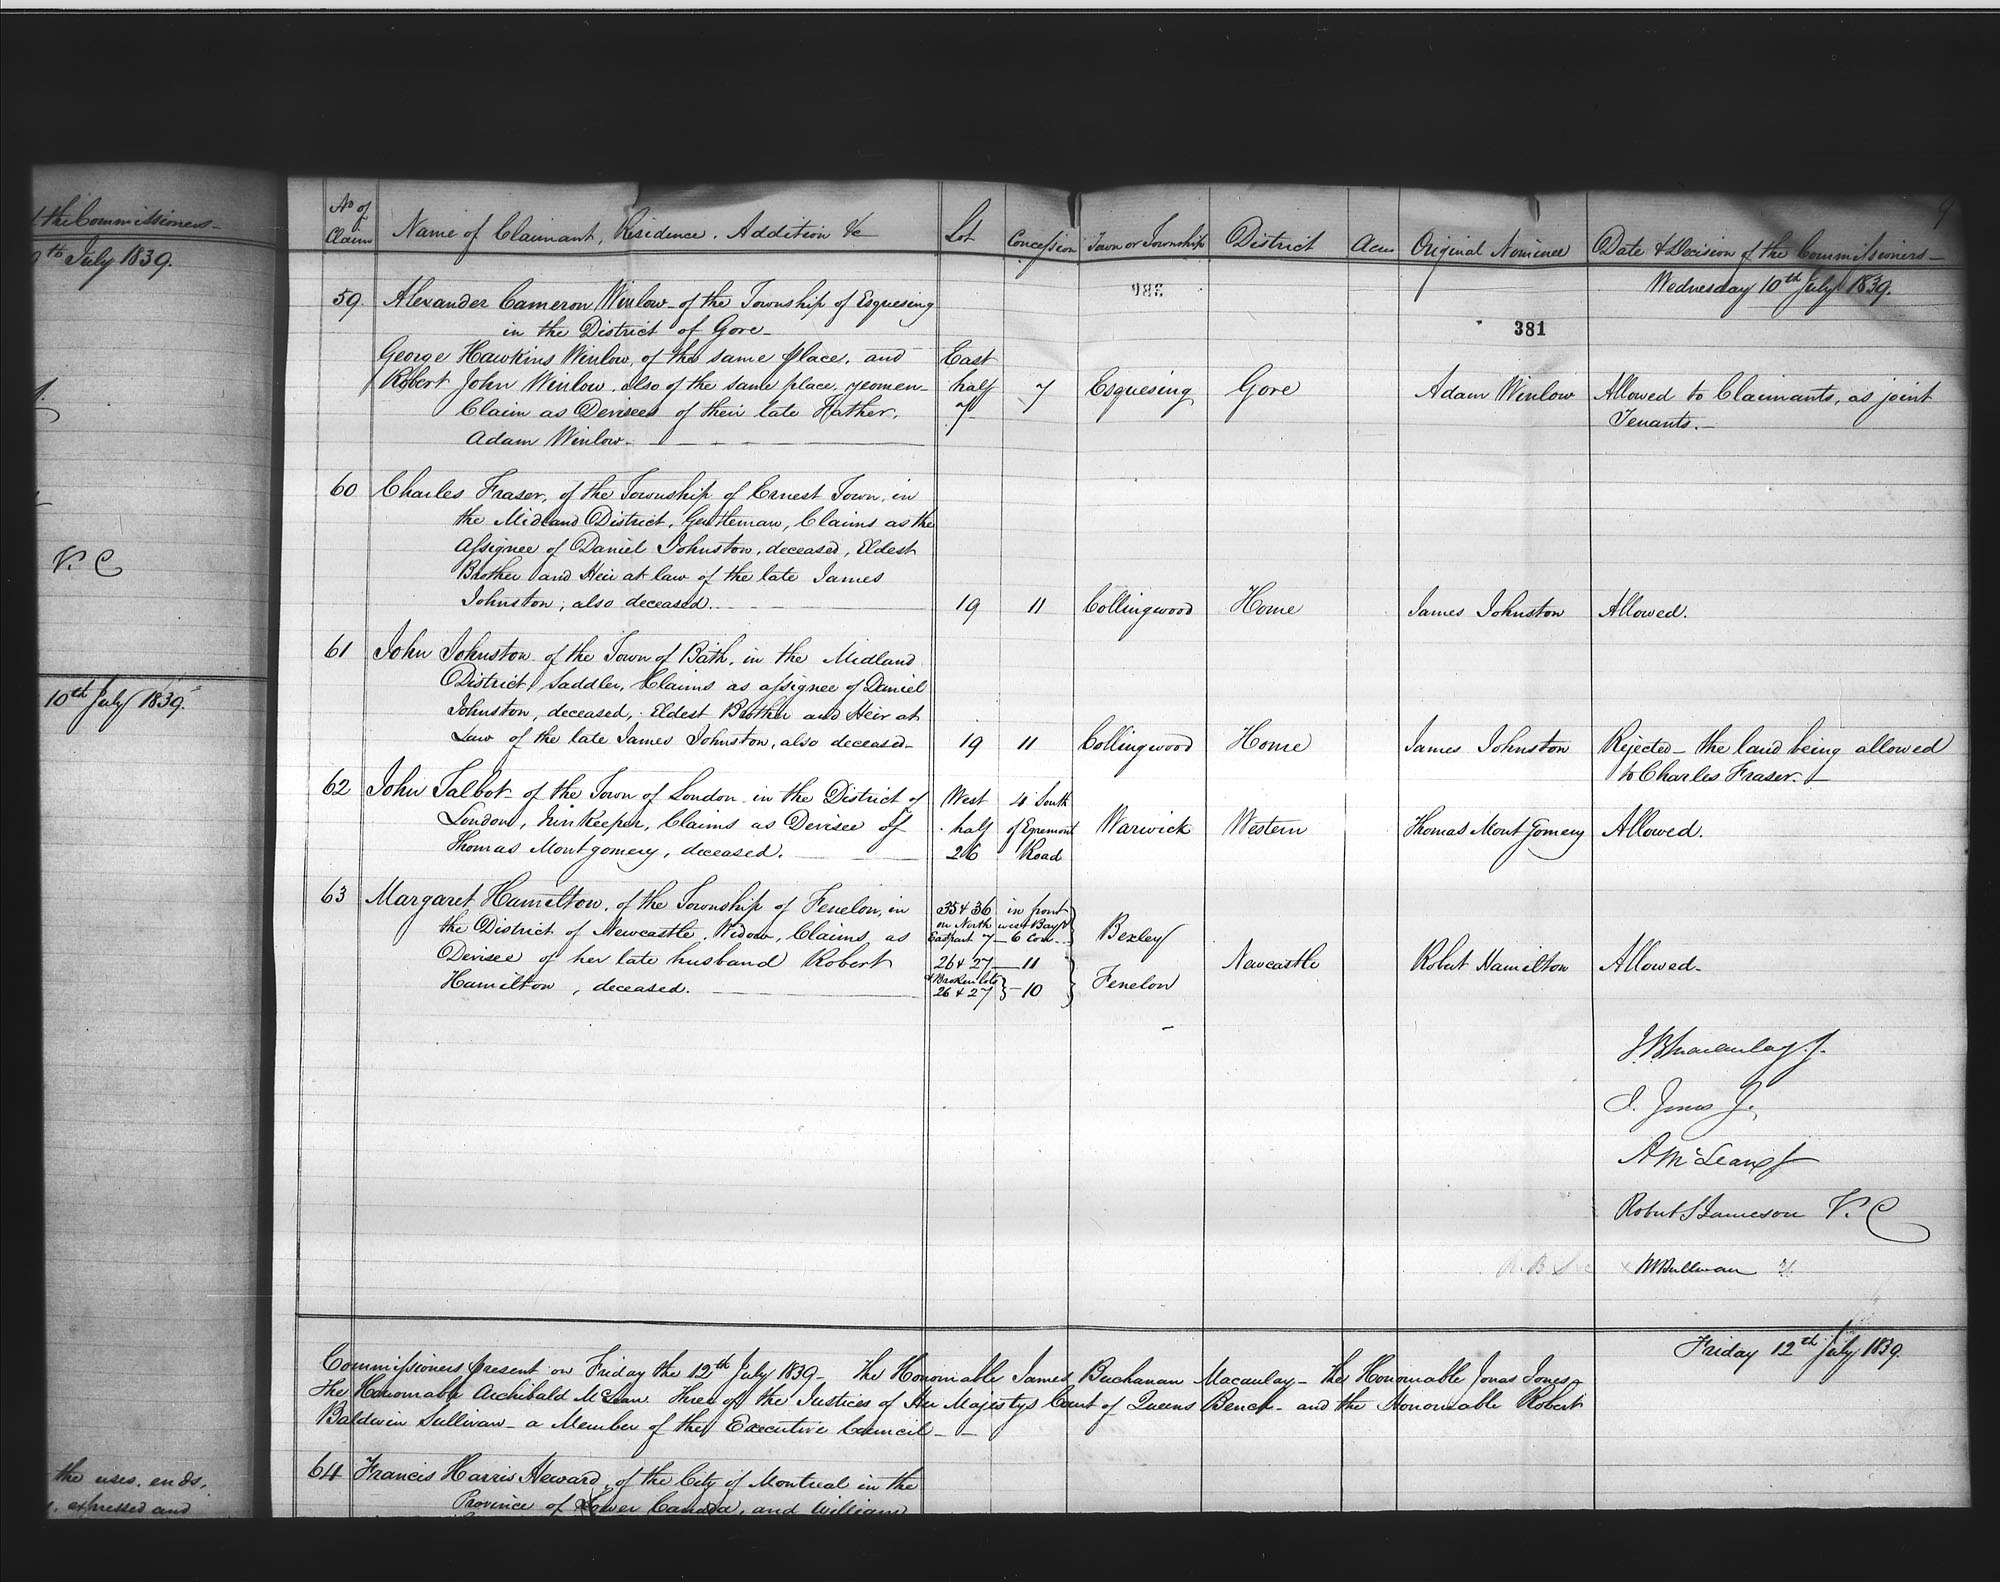 the Commissioners
July 1839.
V. C
10th July 1839.
the uses, ends,
expressed and
9
No of Claim
Name of Claimant, Residence, Addition &c
Lot
Concession
Town or Township
District
Acres
Original Nominee
Date & Decision of the Commissioners
Wednesday 10th July 1839.
381
59
Alexander Cameron Winlow of the Township of Esquesing
in the District of Gore
George Hawkins Winlow, of the same place, and
Robert John Winlow, also of the same place, yeomen
Claim as Devisees of their late Father,
Adam Winlow.
East
half
7
7
Esquesing
Gore
Adam Winlow
Allowed to Claimants, as joint
Tenants.
60
Charles Fraser, of the Township of Ernest Town, in
the Midland District, Gentleman, Claims as the
assignee of Daniel Johnston, deceased, Eldest
Brother and Heir at law of the late James
Johnston, also deceased.
19
11
Collingwood
Home
James Johnston
Allowed.
61
John Johnston of the Town of Bath, in the Midland
District, Saddler, Claims as assignee of Daniel
Johnston, deceased, Eldest Brother and Heir at
Law of the late James Johnston, also deceased
19
11
Collingwood
Home
James Johnston
Rejected – the land being allowed
to Charles Fraser.
62
John Talbot of the Town of London in the District of
London, Innkeeper, Claims as Devisee of
Thomas Montgomery, deceased.
West
half
26
4 South
of Egremont
Road
Warwick
Western
Thomas Montgomery
Allowed.
63
Margaret Hamilton, of the Township of Fenelon, in
the District of Newcastle, Widow, Claims as
Devisee of her late husband Robert
Hamilton, deceased.
35 & 36 in front
on North west Bay &
East part 7 – 6 Con
26 & 27 – 11
& Broken lots
26 & 27 – 10
Bexley
Fenelon
Newcastle
Robert Hamilton
Allowed.
J B Macaulay. J.
J. Jones J.
A McLean J
Robert S Jameson V. C
R B Sullivan
Friday 12th July 1839.
Commissioners present on Friday the 12th July 1839 – The Honorable James Buchanan Macaulay – The Honourable Jonas Jones
The Honorable Archibald McLean Three of the Justices of Her Majestys Court of Queens Bench – and the Honourable Robert
Baldwin Sullivan – a Member of the Executive Council –
64
Francis Harris Heward, of the City of Montreal in the
Province of Lower Canada, and William